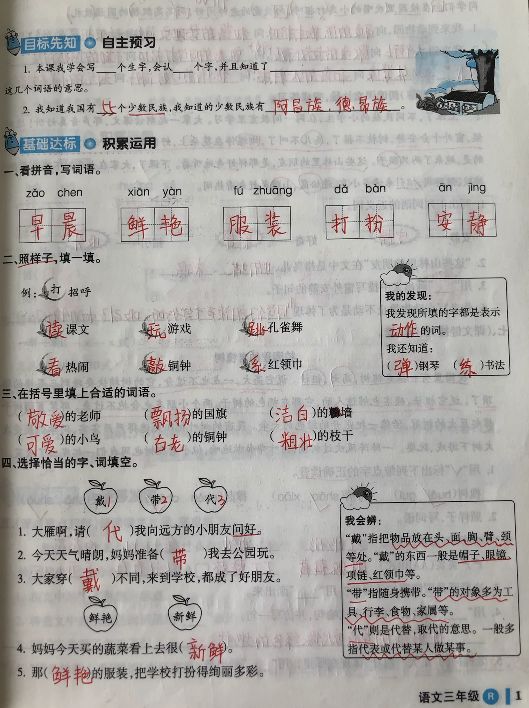 目标先知 自主预习
1. 本课我学会写___个生字,会认___个字,并且知道了___
这几个词语的意思。
2. 我知道我国有55个少数民族,我知道的少数民族有 阿昌族 德昂族 。
基础达标 积累运用
一、看拼音,写词语。
zǎo chen xiān yàn fú zhuāng dǎ bàn ān jìng
早晨 鲜艳 服装 打扮 安静
二、照样子,填一填。
例:打 招呼
读 课文 玩 游戏 跳 孔雀舞
看 热闹 敲 铜钟 系 红领巾
我的发现:
我发现所填的字都是表示
动作 的词。
我还知道:
(弹)钢琴 (练)书法
三、在括号里填上合适的词语。
(敬爱)的老师 (飘扬)的国旗 (洁白)的墙
(可爱)的小鸟 (古老)的铜钟 (粗壮)的枝干
四、选择恰当的字、词填空。
戴1 带2 代3
1. 大雁啊,请( 代 )我向远方的小朋友问好。
2. 今天天气晴朗,妈妈准备( 带 )我去公园玩。
3. 大家穿( 戴 )不同,来到学校,都成了好朋友。
鲜艳 新鲜
4. 妈妈今天买的蔬菜看上去很( 新鲜 )。
5. 那( 鲜艳 )的服装,把学校打扮得绚丽多彩。
我会辨:
“戴”指把物品放在头、面、胸、臂、颈
等处。“戴”的东西一般是帽子、眼镜、
项链、红领巾等。
“带”指随身携带。“带”的对象多为工
具、行李、食物、家属等。
“代”则是代替,取代的意思。一般多
指代表或代替某人做某事。
语文三年级 R 1